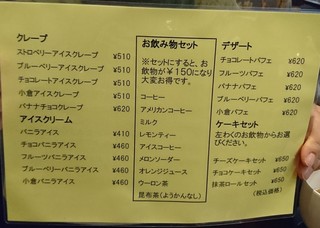 クレープ
ストロベリーアイスクレープ ¥510
ブルーベリーアイスクレープ ¥510
チョコレートアイスクレープ ¥510
小倉アイスクレープ ¥510
バナナチョコクレープ ¥620
アイスクリーム
バニラアイス ¥410
チョコバニラアイス ¥460
フルーツバニラアイス ¥460
ブルーベリーバニラアイス ¥460
小倉バニラアイス ¥460
お飲み物セット
※セットにすると、お
飲物が¥150になり
大変お得です。
コーヒー
アメリカンコーヒー
ミルク
レモンティー
アイスコーヒー
メロンソーダー
オレンジジュース
ウーロン茶
昆布茶(ようかんなし)
デザート
チョコレートパフェ ¥620
フルーツパフェ ¥620
バナナパフェ ¥620
ブルーベリーパフェ ¥620
小倉パフェ ¥620
ケーキセット
左わくのお飲物からお選
びください。
チーズケーキセット ¥650
チョコケーキセット ¥650
抹茶ロールセット ¥650
(税込価格)